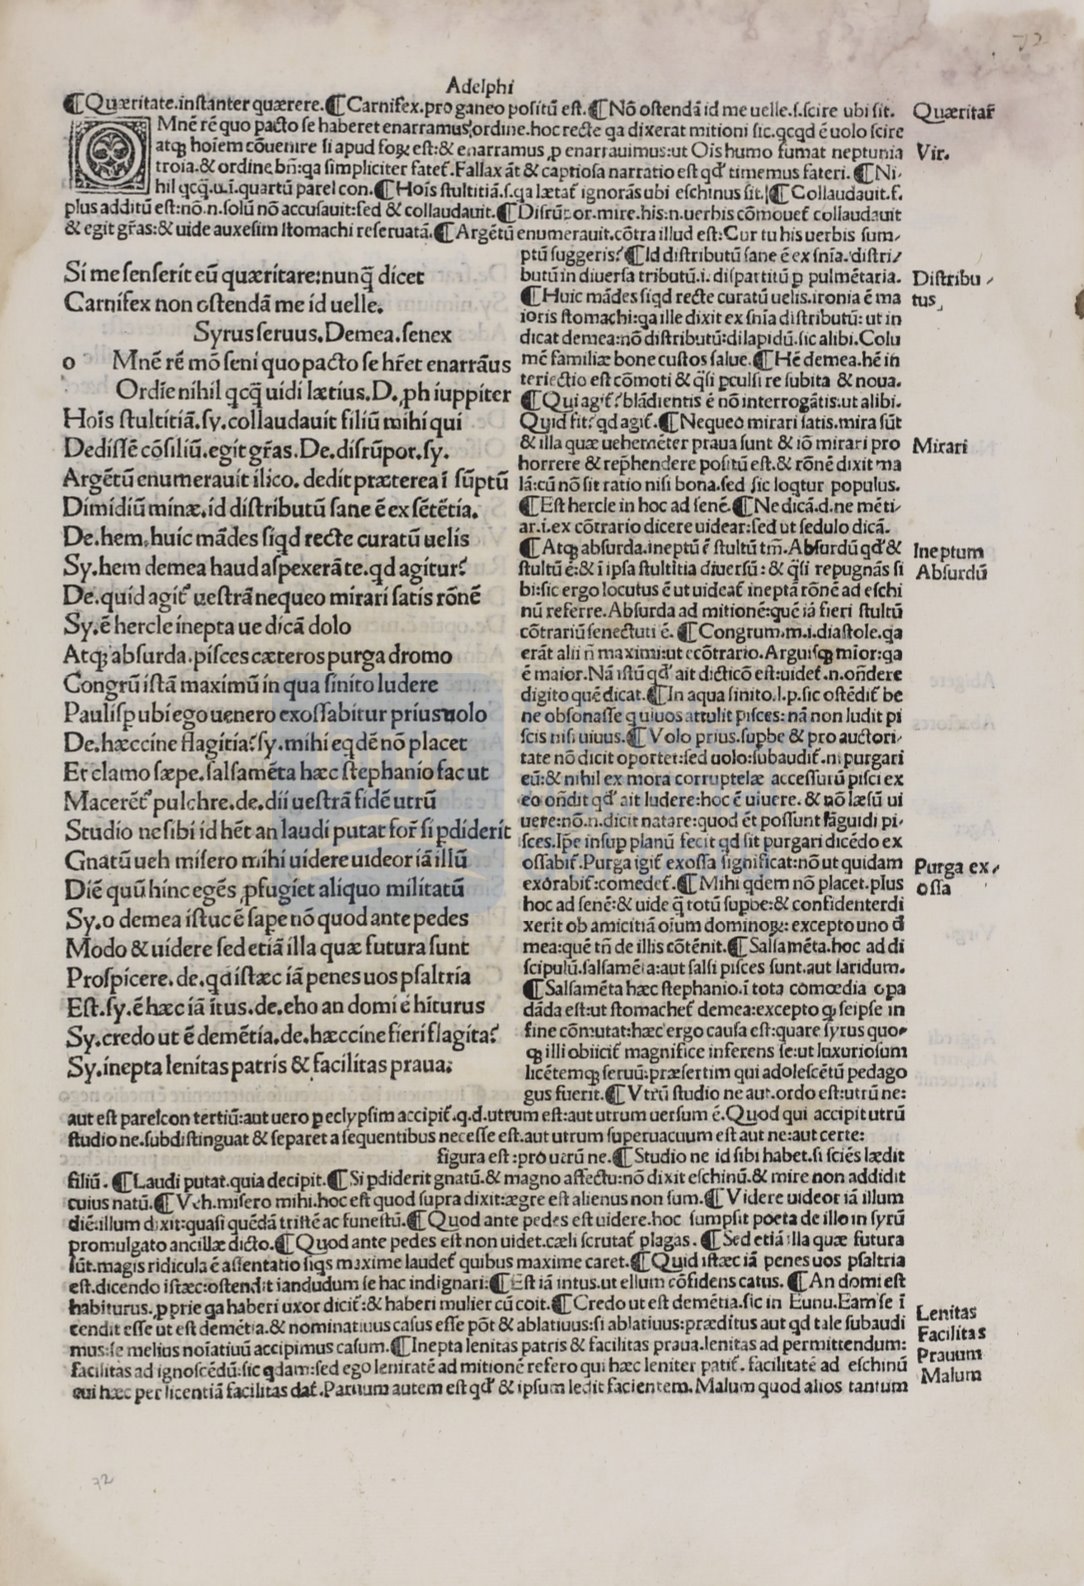 72
Adelphi
¶Quæritate.instanter quærere.¶Carnifex.pro ganeo positũ est.¶Nõ ostendã id me uelle.s.scire ubi sit.
Quæritar̃
Mnẽ rẽ quo pacto se haberet enarramus;ordine.hoc recte qa dixerat mitioni sic.qcqd ẽ uolo scire
atqꝫ hoiem cõuenire si apud foꝝ est:& enarramus ꝓ enarrauimus:ut Ois humo fumat neptunia
Vir.
troia.& ordine bñ:qa simpliciter fatet᷑.Fallax ãt & captiosa narratio est qd᷑ timemus fateri.¶Ni-
hil qcq̃.u.ĩ.quartũ parelcon.¶Hoĩs stultitiã.s.qa lætat᷑ ignorãs ubi eschinus sit.¶Collaudauit.f.
plus additũ est:nõ.n.solũ nõ accusauit:sed & collaudauit.¶Disrũpor.mire.his:n.uerbis cõmouet᷑ collaudauit
& egit gr̃as:& uide auxesim stomachi reseruatã.¶Argẽtũ enumerauit.cõtra illud est:Cur tu his uerbis sum-
Si me senserit eũ quæritare:nunq̃ dicet
Carnifex non ostendã me id uelle.
Syrus seruus.Demea.senex
o Mnẽ rẽ mõ seni quo pacto se hr̃et enarrãus
Ordĩe nihil qcq̃ uidi lætius.D.ꝓh iuppiter
Hoĩs stultitiã.sy.collaudauit filiũ mihi qui
Dedissẽ cõsiliũ.egit gr̃as.De.disrũpor.sy.
Argẽtũ enumerauit ilico.dedit præterea ĩ sũptũ
Dimidiũ minæ.id distributũ sane ẽ ex sẽtẽtia.
De.hem,huic mãdes siqd recte curatũ uelis
Sy.hem demea haud aspexerã te.qd agitur?
De.quid agit᷑ uestrã nequeo mirari satis rõnẽ
Sy.ẽ hercle inepta ue dicã dolo
Atqꝫ absurda.pisces cæteros purga dromo
Congrũ istã maximũ in qua sinito ludere
Paulisꝑ ubi ego uenero exossabitur prius uolo
De.hæccine flagitia?sy.mihi eqdẽ nõ placet
Et clamo sæpe.salsamẽta hæc stephanio fac ut
Macerẽt᷑ pulchre.de.dii uestrã fidẽ utrũ
Studio ne sibi id hẽt an laudi putat for̃ si ꝑdiderit
Gnatũ ueh misero mihi uidere uideor iã illũ
Diẽ quũ hinc egẽs ꝓfugiet aliquo militatũ
Sy.o demea istuc ẽ sape nõ quod ante pedes
Modo & uidere sed etiã illa quæ futura sunt
Prospicere.de.qd istæc iã penes uos psaltria
Est.sy.ẽ hæc iã ĩtus.de.eho an domi ẽ hiturus
Sy.credo ut ẽ demẽtia.de.hæccine fieri flagita?
Sy.inepta lenitas patris & facilitas praua;
ptũ suggeris?¶Id distributũ sane ẽ ex snĩa.distri-
butũ in diuersa tributũ.i.dispartitũ ꝑ pulmẽtaria.
Distribu-
¶Huic mãdes siqd recte curatũ uelis.ironia ẽ ma
tus
ioris stomachi:qa ille dixit ex snĩa distributũ: ut in
dicat demea:nõ distributũ:dilapidũ.sic alibi.Colu
mẽ familiæ bone custos salue.¶Hẽ demea.hẽ in
teriectio est cõmoti & q̃si ꝑculsi re subita & noua.
¶Qui agit᷑?blãdientis ẽ nõ interrogãtis:ut alibi.
Quid fit?qd agit᷑.¶Nequeo mirari satis.mira sũt
& illa quæ uehemẽter praua sunt & iõ mirari pro
Mirari
horrere & rep̃hendere positũ est.& rõnẽ dixit ma
lã:cũ nõ sit ratio nisi bona.sed sic loqtur populus.
¶Est hercle in hoc ad senẽ.¶Ne dicã.d.ne mẽti-
ar.i.ex cõtrario dicere uidear:sed ut sedulo dicã.
¶Atqꝫ absurda.ineptũ ẽ stultũ tm̃.Absurdũ qd᷑ &
Ineptum
stultũ ẽ:& ĩ ipsa stultitia diuersũ:& q̃si repugnãs si
Absurdũ
bi:sic ergo locutus ẽ ut uideat᷑ ineptã rõnẽ ad eschi
nũ referre.Absurda ad mitionẽ:quẽ iã fieri stultũ
cõtrariũ senectuti ẽ.¶Congrum.m.i.diastole.qa
erãt alii ñ maximi:ut ecõtrario.Arguisqꝫ mĩor:qa
ẽ maior.Nã istũ qd᷑ ait dicticõ est:uidet᷑.n.oñdere
digito quẽ dicat.¶In aqua sinito.l.p.sic ostẽdit᷑ be
ne obsonasse q uiuos attulit pisces:nã non ludit pi
scis nisi uiuus.¶Volo prius.supbe & pro auctori-
tate nõ dicit oportet:sed uolo:subaudit᷑.ni purgari
eũ:& nihil ex mora corruptelæ accessurũ pisci ex
eo oñdit qd᷑ ait ludere:hoc ẽ uiuere.& nõ læsũ ui
uere:nõ.n.dicit natare:quod ẽt possunt lãguidi pi-
sces.Ip̃e insuꝑ planũ fecit qd sit purgari dicẽdo ex
ossabit᷑.Purga igit᷑ exossa significat:nõ ut quidam
Purga ex-
exõrabit᷑:comedet᷑.¶Mihi qdem nõ placet.plus
ossa
hoc ad senẽ:& uide q̃ totũ supbe:& confidenter di
xerit ob amicitiã oĩum dominoꝝ: excepto uno d
mea:quẽ tñ de illis cõtẽnit.¶Salsamẽta.hoc ad di
scipulũ.salsamẽta:aut salsi pisces sunt.aut laridum.
¶Salsamẽta hæc stephanio.ĩ tota comœdia opa
dãda est:ut stomachet᷑ demea:excepto qꝫ seipse in
fine cõmutat:hæc ergo causa est:quare syrus quo-
qꝫ illi obiicit᷑ magnifice inferens se:ut luxuriosum
licẽtemqꝫ seruũ:præsertim qui adolescẽtũ pedago
gus fuerit.¶Vtrũ studio ne aut.ordo est:utrũ ne:
aut est parelcon tertiũ:aut uero ꝑ eclypsim accipit᷑.q.d.utrum est:aut utrum uersum ẽ.Quod qui accipit utrũ
studio ne.subdistinguat & separet a sequentibus necesse est.aut utrum superuacuum est aut ne:aut certe:
figura est:pro utrũ ne.¶Studio ne id sibi habet.si sciẽs lædit
filiũ.¶Laudi putat.quia decipit.¶Si ꝑdiderit gnatũ.& magno affectu:nõ dixit eschinũ.& mire non addidit
cuius natũ.¶Veh.misero mihi.hoc est quod supra dixit:ægre est alienus non sum.¶Videre uideor iã illum
diẽ:illum dixit:quasi quẽdã tristẽ ac funestũ.¶Quod ante pedes est uidere.hoc sumpsit poeta de illo in syrũ
promulgato ancillæ dicto.¶Quod ante pedes est non uidet.cæli scrutat᷑ plagas.¶Sed etiã illa quæ futura
sũt.magis ridicula ẽ assentatio siqs maxime laudet᷑ quibus maxime caret.¶Quid istæc iã penes uos psaltria
est.dicendo istæc:ostendit iandudum se hac indignari:¶Est iã intus.ut ellum cõfidens catus.¶An domi est
habiturus.ꝓprie qa haberi uxor dicit᷑:& haberi mulier cũ coit.¶Credo ut est demẽtia.sic in Eunu.Eam se ĩ
tendit esse ut est demẽtia.& nominatiuus casus esse põt & ablatiuus:si ablatiuus:præditus aut qd tale subaudi
Lenitas
mus:se melius noĩatiuũ accipimus casum.¶Inepta lenitas patris & facilitas praua.lenitas ad permittendum:
Facilitas
facilitas ad ignoscẽdũ:sic qdam:sed ego lenitatẽ ad mitionẽ refero qui hæc leniter patit᷑.facilitatẽ ad eschinũ
Prauum
qui hæc per licentiã facilitas dat᷑.Paruum autem est qd᷑ & ipsum ledit facientem.Malum quod alios tantum
Malum
72